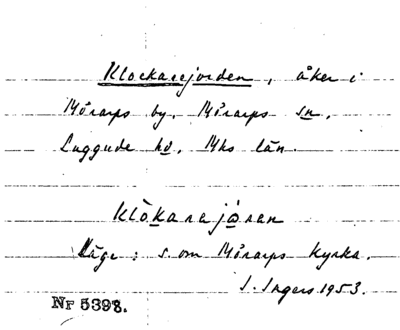 Klockarejorden, åker i
Mörarps by, Mörarps sn,
Luggude hd, Mhs län.
Klòkarejọren
Läge: s. om Mörarps kyrka.
I. Ingers 1953.
Nr 5398.